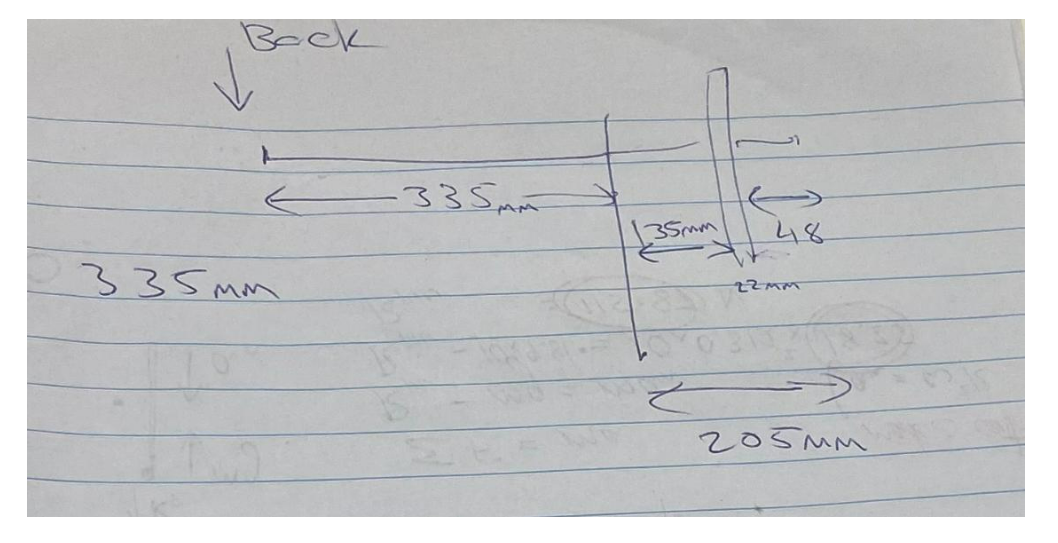 Back
335mm
135mm
48
335mm
22mm
205mm